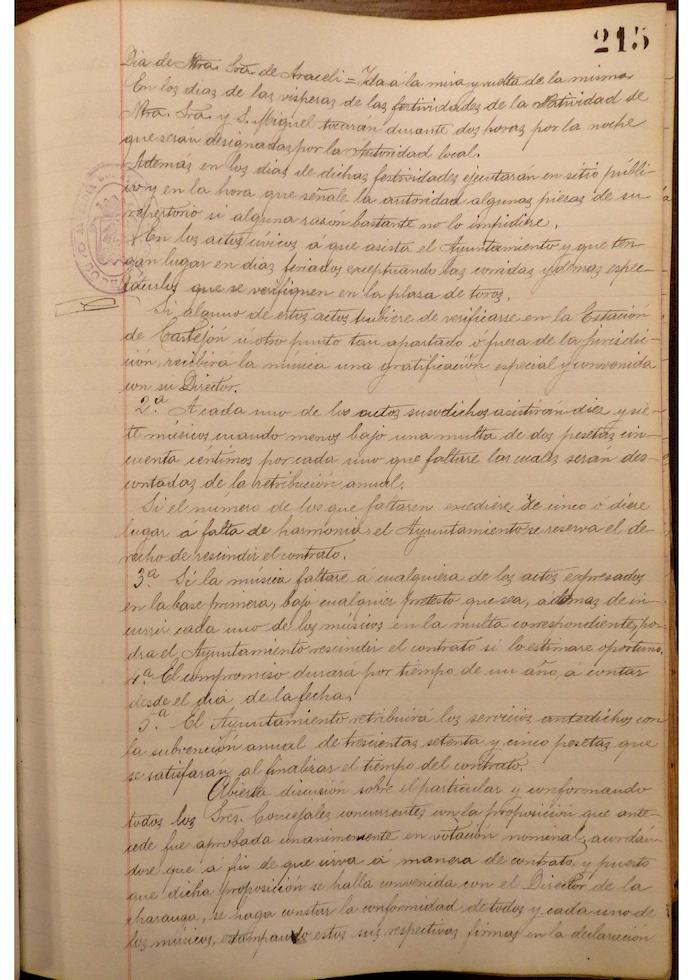 215
Dia de Ntra. Sra. de Araceli = Ida a la misa y vuelta de la misma
En los dias de las visperas de las festividades de la Natividad de
Ntra. Sra. y S. Miguel tocarán durante dos horas por la noche
que serán designadas por la Autoridad local.
Además en los dias de dichas festividades ejecutarán en sitio públi-
co y en la hora que señale la autoridad algunas piezas de su
repertorio si alguna razón bastante no lo impidiere.
En los actos civicos á que asista el Ayuntamiento y que ten-
gan lugar en dias feriados exceptuando las corridas y demas espec-
táculos que se verifiquen en la plasa de toros.
Si alguno de estos actos hubiere de verificarse en la Estación
de Castejón ú otro punto tan apartado ó fuera de la jurisdic-
ción, recibira la música una gratificación especial y convenida
con su Director.
2.ª A cada uno de los actos susodichos asistirán diez y sie-
te músicos cuando menos bajo una multa de dos pesetas cin-
cuenta céntimos por cada uno que faltare las cuales serán des-
contadas de la retribución anual.
Si el número de los que faltaren excediere de cinco ó diere
lugar á falta de harmonia el Ayuntamiento se reserva el de-
recho de rescindir el contrato.
3.ª Si la música faltare á cualquiera de los actos expresados
en la base primera, bajo cualquier pretesto que sea, ademas de in-
currir cada uno de los músicos en la multa correspondiente, po-
dra el Ayuntamiento rescindir el contrato si lo estimare oportuno.
4.ª El compromiso durará por tiempo de un año, á contar
desde el dia de la fecha.
5.ª El Ayuntamiento retribuirá los servicios antedichos con
la subvención anual de trescientas setenta y cinco pesetas que
se satisfaran al finalizar el tiempo del contrato.
Abierta discusión sobre el particular y conformando
todos los Sres. Concejales concurrentes con la proposición que ante-
cede fue aprobada unanimemente en votación nominal, acordán-
dose que á fin de que sirva á manera de contrato, y puesto
que dicha proposición se halla convenida con el Director de la
charanga, se haga constar la conformidad de todos y cada uno de
los músicos, estampando estos sus respectivas firmas en la declaración